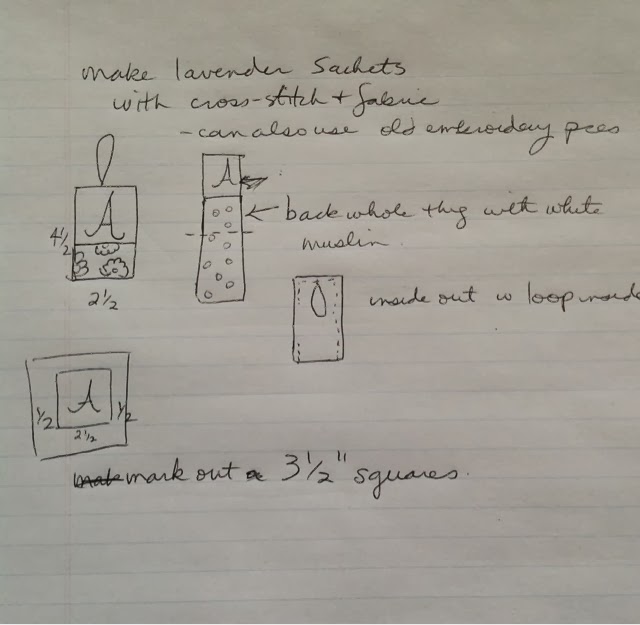 make lavender Sachets
with cross-stitch + fabric
- can also use old embroidery pces
A
A
4 1/2
back whole thg with white
muslin.
2 1/2
inside out w loop inside
A
1/2
1/2
2 1/2
mark out a 3 1/2" squares.